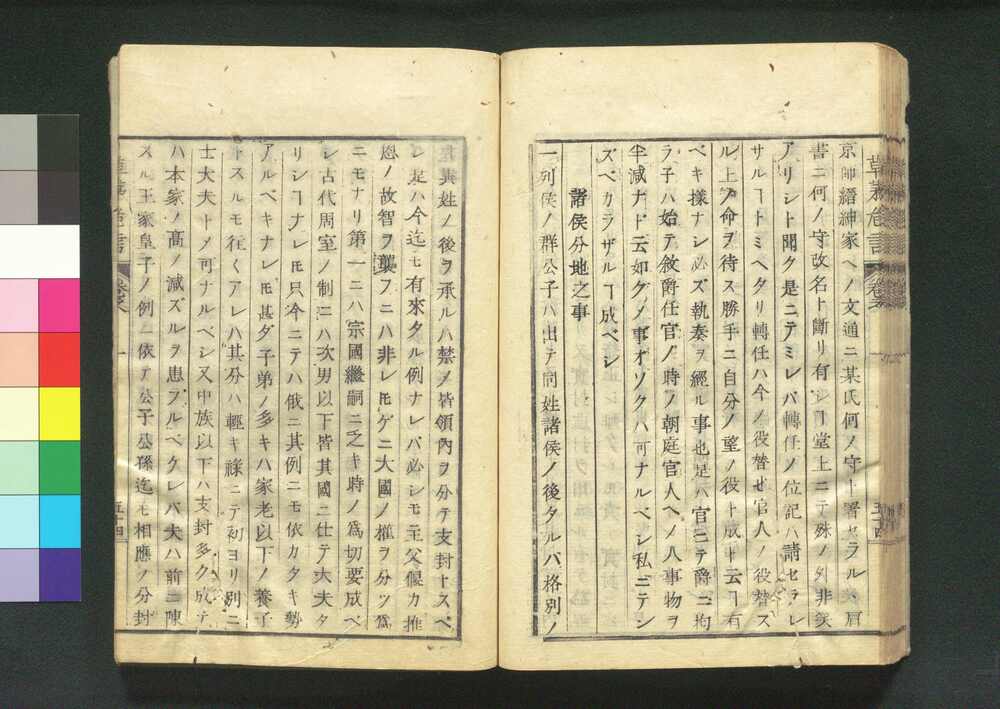 草茅危言
京師縉紳家ヘノ文通ニ某氏何ノ守ト署セラル丶肩
書ニ何ノ守改名ト斷リ有シヿ堂上ニテ殊ノ外非笑
アリシト聞ク是ニテミレバ轉任ノ位記ハ請セラレ
サルヿトミヘタリ轉任ハ今ノ役替ゼ官人ノ役替ス
ル上ノ命ヲ待ス勝手ニ自分ノ望ノ役ト成ト云ヿ有
ベキ樣ナシ必ズ執奏ヲ經ル事也是ハ官ニテ爵ニ拘
ラ子ハ始テ敘爵任官ノ時ノ朝庭官人ヘノ人事物ヲ
半減ナト云如クノ事オソクハ可ナルベシ私ニテシ
ズベカラザルヿ成ベシ
諸侯分地之事
一列侯ノ群公子ハ出テ同姓諸侯ノ後タルバ格別ノ
異姓ノ後ヲ承ルハ禁メ皆領內ヲ分テ支封トスベ
シ是ハ今迄モ有來タル例ナレバ必シモ主父偃カ推
恩ノ故智ヲ襲フニハ非レ𪜈ゲニ大國ノ權ヲ分ツ爲
ニモナリ第一ニハ宗國繼嗣ニ乏キ時ノ爲切要成ベ
シ古代周室ノ制ニハ次男以下皆其國ニ仕テ大夫タ
リシヿナレ𪜈只今ニテハ俄ニ其例ニモ依カタキ勢
アルベキナレ𪜈甚ダ子弟ノ多キハ家老以下ノ養子
トスルモ往々アレハ其分ハ輕キ祿ニテ初ヨリ別ニ
士大夫トメ可ナルベシ又中族以下ハ支封多ク成テ
ハ本家ノ高ノ減ズルヲ患フルベクレバ夫ハ前ニ陳
スル王家皇子ノ例ニ依テ公子公孫迄モ相應ノ分封